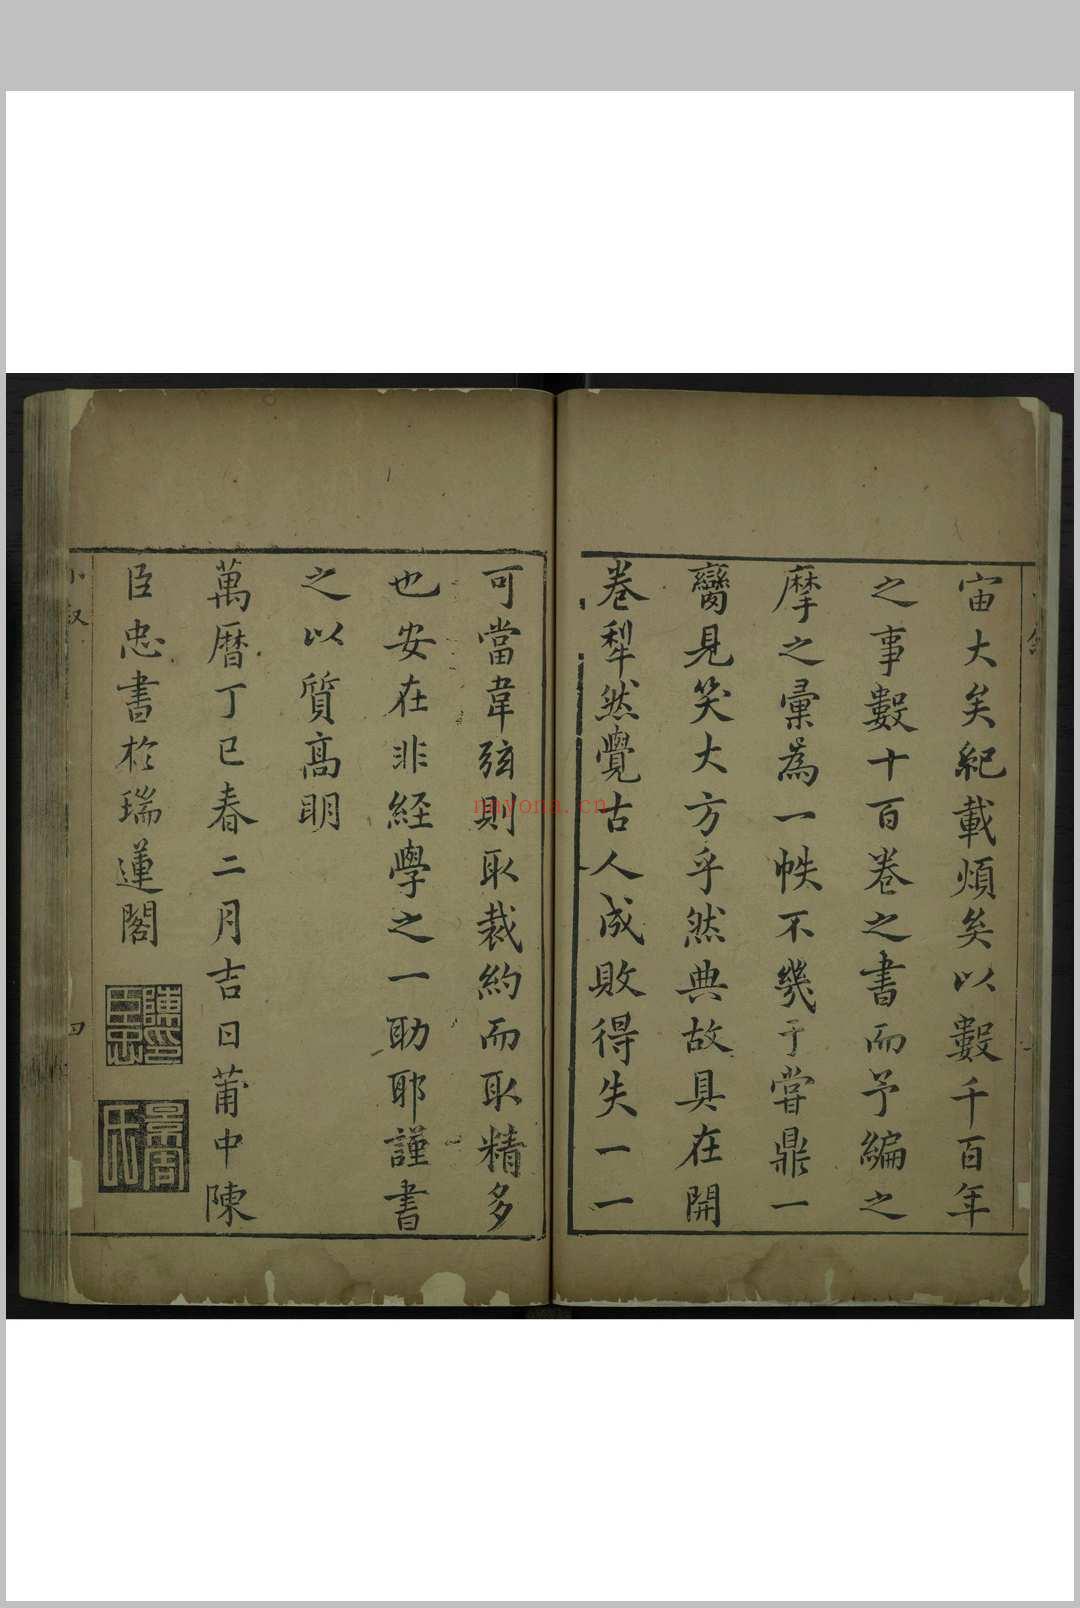 宙大矣紀載煩矣以數千百年
之事數十百卷之書而予編之
摩之彙為一帙不幾于嘗鼎一
臠見笑大方乎然典故具在開
卷犁然覺古人成敗得失一一
可當韋弦則取裁約而取精多
也安在非經學之一助耶謹書
之以質高明
萬曆丁巳春二月吉日莆中陳
臣忠書於瑞蓮閣
陳印臣忠
小叙
四
nayona.cn